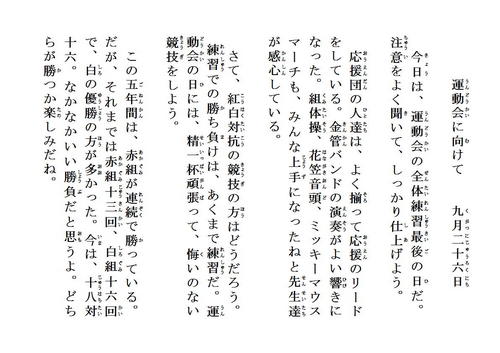 運動会に向けて　九月二十六日
今日は、運動会の全体練習最後の日だ。
注意をよく聞いて、しっかり仕上げよう。
応援団の人達は、よく揃って応援のリード
をしている。金管バンドの演奏がよい響きに
なった。組体操、花笠音頭、ミッキーマウス
マーチも、みんな上手になったねと先生達
が感心している。
さて、紅白対抗の競技の方はどうだろう。
練習での勝ち負けは、あくまで練習だ。運
動会の日には、精一杯頑張って、悔いのない
競技をしよう。
この五年間は、赤組が連続で勝っている。
だが、それまでは赤組十三回、白組十六回
で、白の優勝の方が多かった。今は、十八対
十六。なかなかいい勝負だと思うよ。どち
らが勝つか楽しみだね。